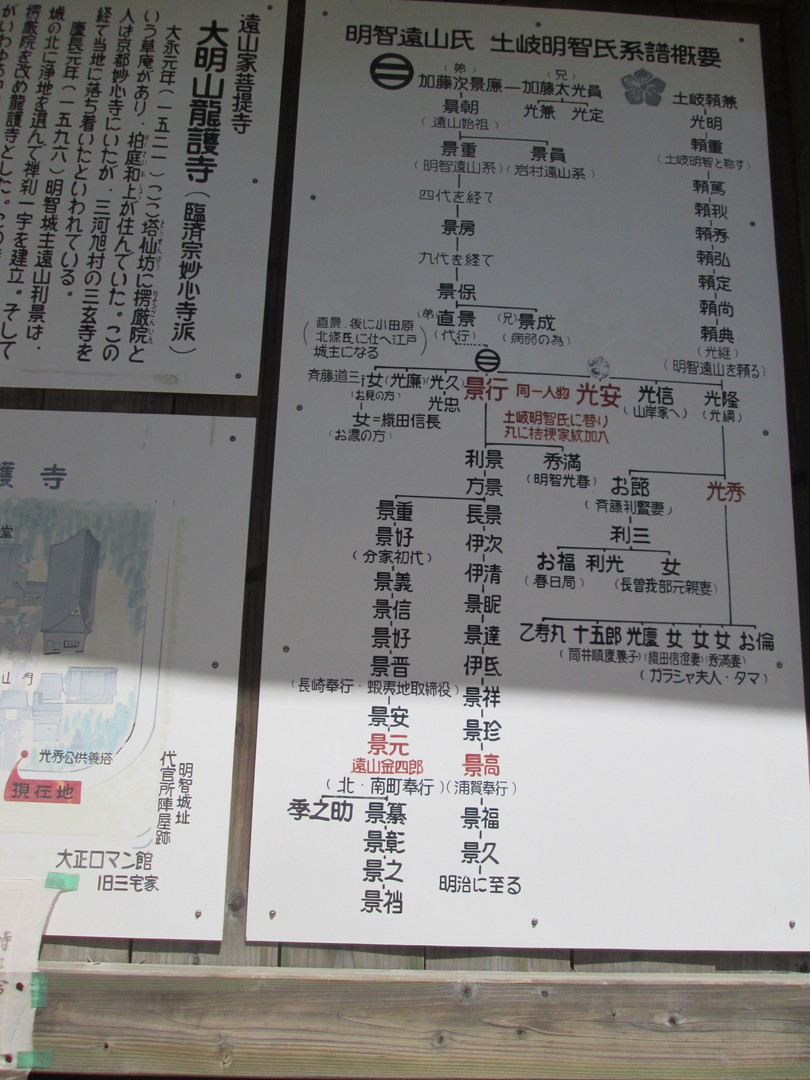 明智遠山氏 土岐明智氏系譜概要
(弟) (兄)
加藤次景廉―加藤太光員
景朝 光兼 光定
(遠山始祖)
景重 景員
(明智遠山系) (岩村遠山系)
四代を経て
景房
九代を経て
景保
(弟)直景 (兄)景成
(代行) (病弱の為)
直景、後に小田原
北條氏に仕へ江戸
城主になる
土岐頼兼
光明
頼重
(土岐明智と称す)
頼篤
頼秋
頼秀
頼弘
頼定
頼尚
頼典
(光継)
(明智遠山を頼る)
斉藤道三 女 (光廉) (光久) 景行 同一人物 光安 光信 光隆
(お見の方) 光忠 (山岸家へ) (光綱)
女=織田信長
(お濃の方)
土岐明智氏に替り
丸に桔梗家紋加入
利景 秀満
(明智光春)
お郎 光秀
(斉藤利賢妻)
利三
お福 利光 女
(春日局) (長曽我部元親妻)
乙寿丸 十五郎 光慶 女 女 女 お倫
(筒井順慶養子) (織田信澄妻) (秀満妻)
(ガラシャ夫人・タマ)
方景
長景
伊次
伊清
景眤
景達
伊氐
景祥
景珍
景高
(浦賀奉行)
景福
景久
明治に至る
景重
景好
(分家初代)
景義
景信
景好
景晋
(長崎奉行・蝦夷地取締役)
景安
景元
遠山金四郎
(北・南町奉行)
季之助 景纂
景彰
景之
景裆
遠山家菩提寺
大明山龍護寺(臨済宗妙心寺派)
大永元年(一五二一)ここ塔仙坊に楞厳院と
いう草庵があり、柏庭和上が住んでいた。この
人は京都妙心寺にいたが、三河旭村の三玄寺を
経て当地に落ち着いたといわれている。
慶長元年(一五九六)明智城主遠山利景は、
城の北に浄地を選んで禅刹一宇を建立。そして
楞厳院を改め龍護寺とした。
護寺
堂
山門
光秀公供養塔
現在地
明智城址
代官所陣屋跡
大正ロマン館
旧三宅家